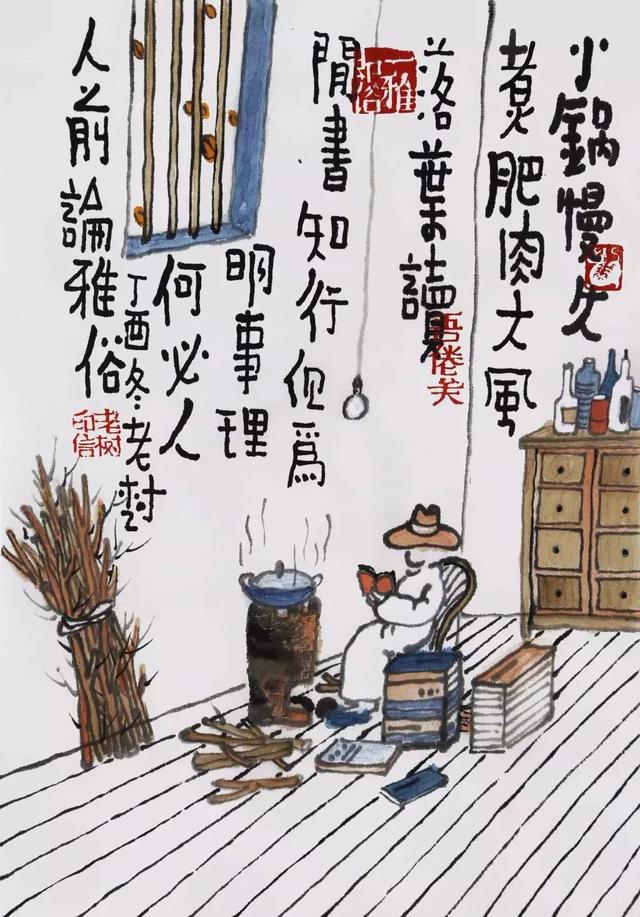 小鍋慢火
煮肥肉大風
落葉讀
閒書知行但爲
明事理
何必人
人之前論雅俗
丁酉冬老树
老树印信